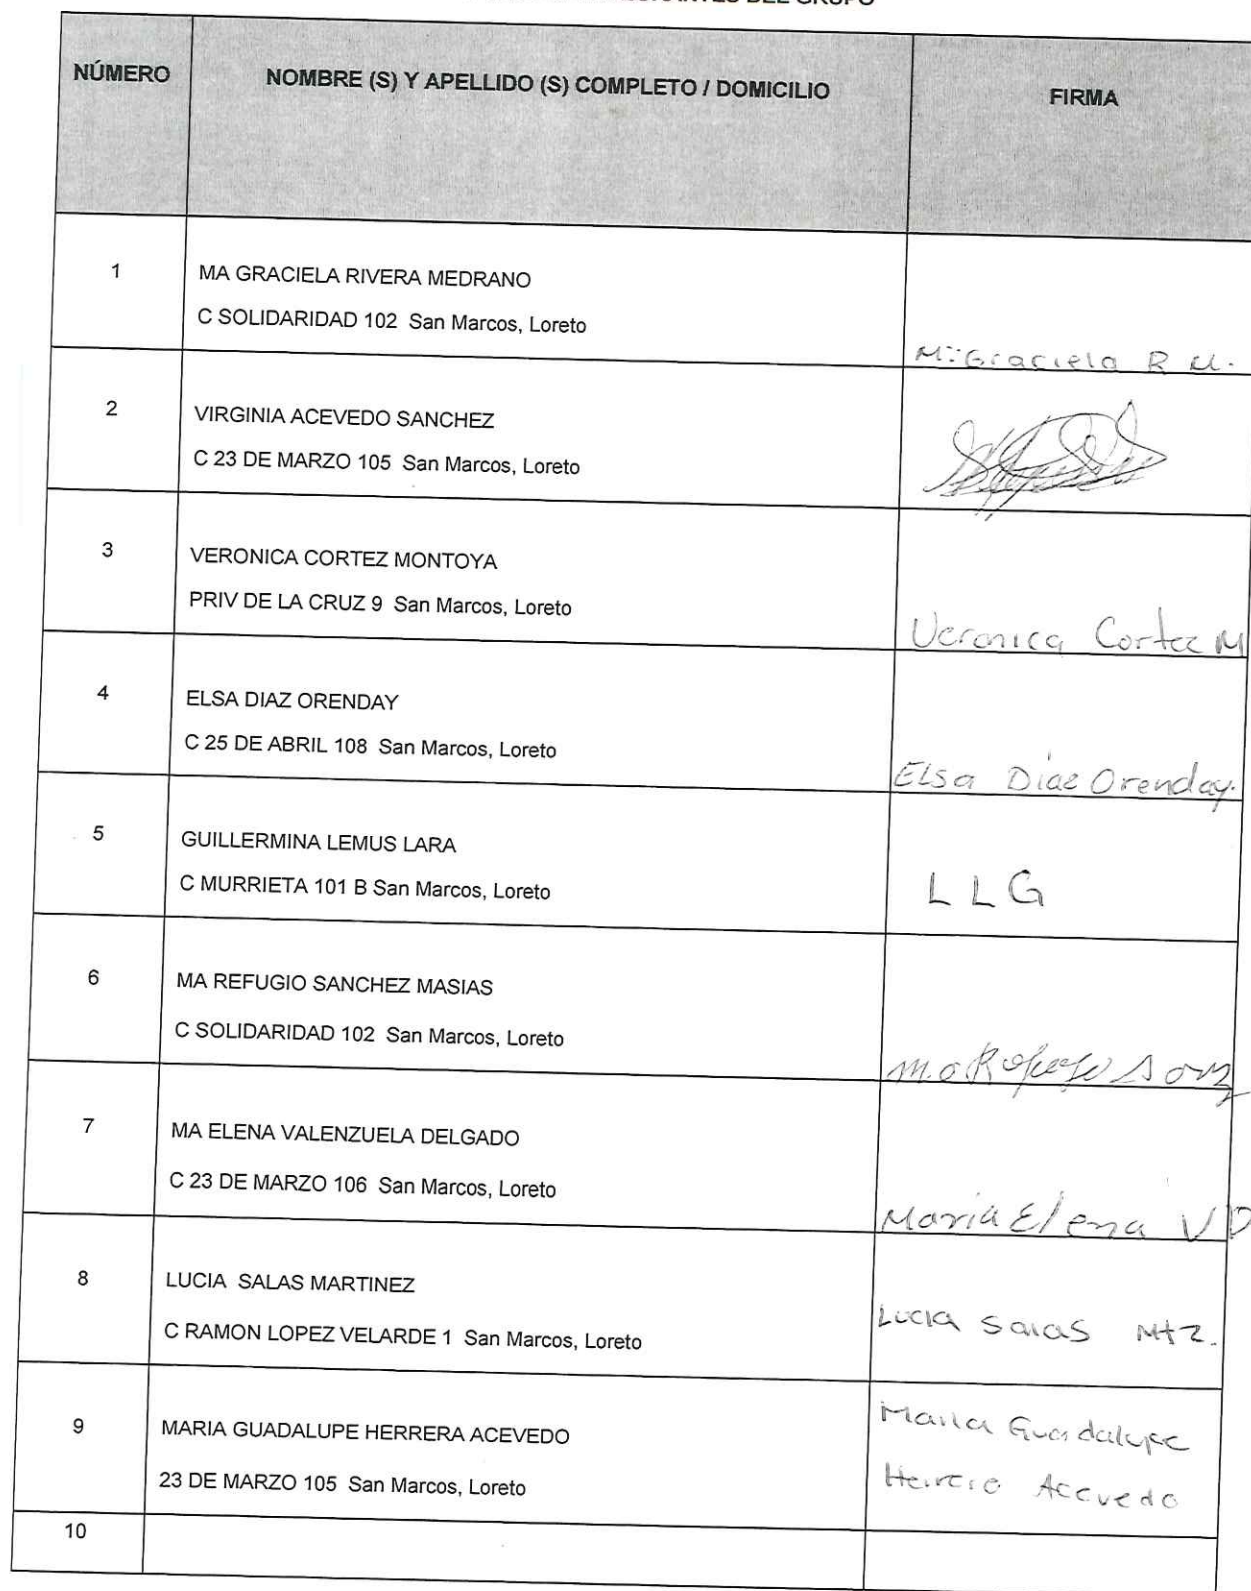 DEL GRUPO
NÚMERO
NOMBRE (S) Y APELLIDO (S) COMPLETO / DOMICILIO
FIRMA
1
MA GRACIELA RIVERA MEDRANO
C SOLIDARIDAD 102 San Marcos, Loreto
Graciela R M.
2
VIRGINIA ACEVEDO SANCHEZ
C 23 DE MARZO 105 San Marcos, Loreto
3
VERONICA CORTEZ MONTOYA
PRIV DE LA CRUZ 9 San Marcos, Loreto
Veronica Cortez M
4
ELSA DIAZ ORENDAY
C 25 DE ABRIL 108 San Marcos, Loreto
Elsa Díaz Orenday.
5
GUILLERMINA LEMUS LARA
C MURRIETA 101 B San Marcos, Loreto
L L G
6
MA REFUGIO SANCHEZ MASIAS
C SOLIDARIDAD 102 San Marcos, Loreto
7
MA ELENA VALENZUELA DELGADO
C 23 DE MARZO 106 San Marcos, Loreto
Maria Elena V D
8
LUCIA SALAS MARTINEZ
C RAMON LOPEZ VELARDE 1 San Marcos, Loreto
Lucia Salas Mtz.
9
MARIA GUADALUPE HERRERA ACEVEDO
23 DE MARZO 105 San Marcos, Loreto
Maria Guadalupe
Herrera Acevedo
10